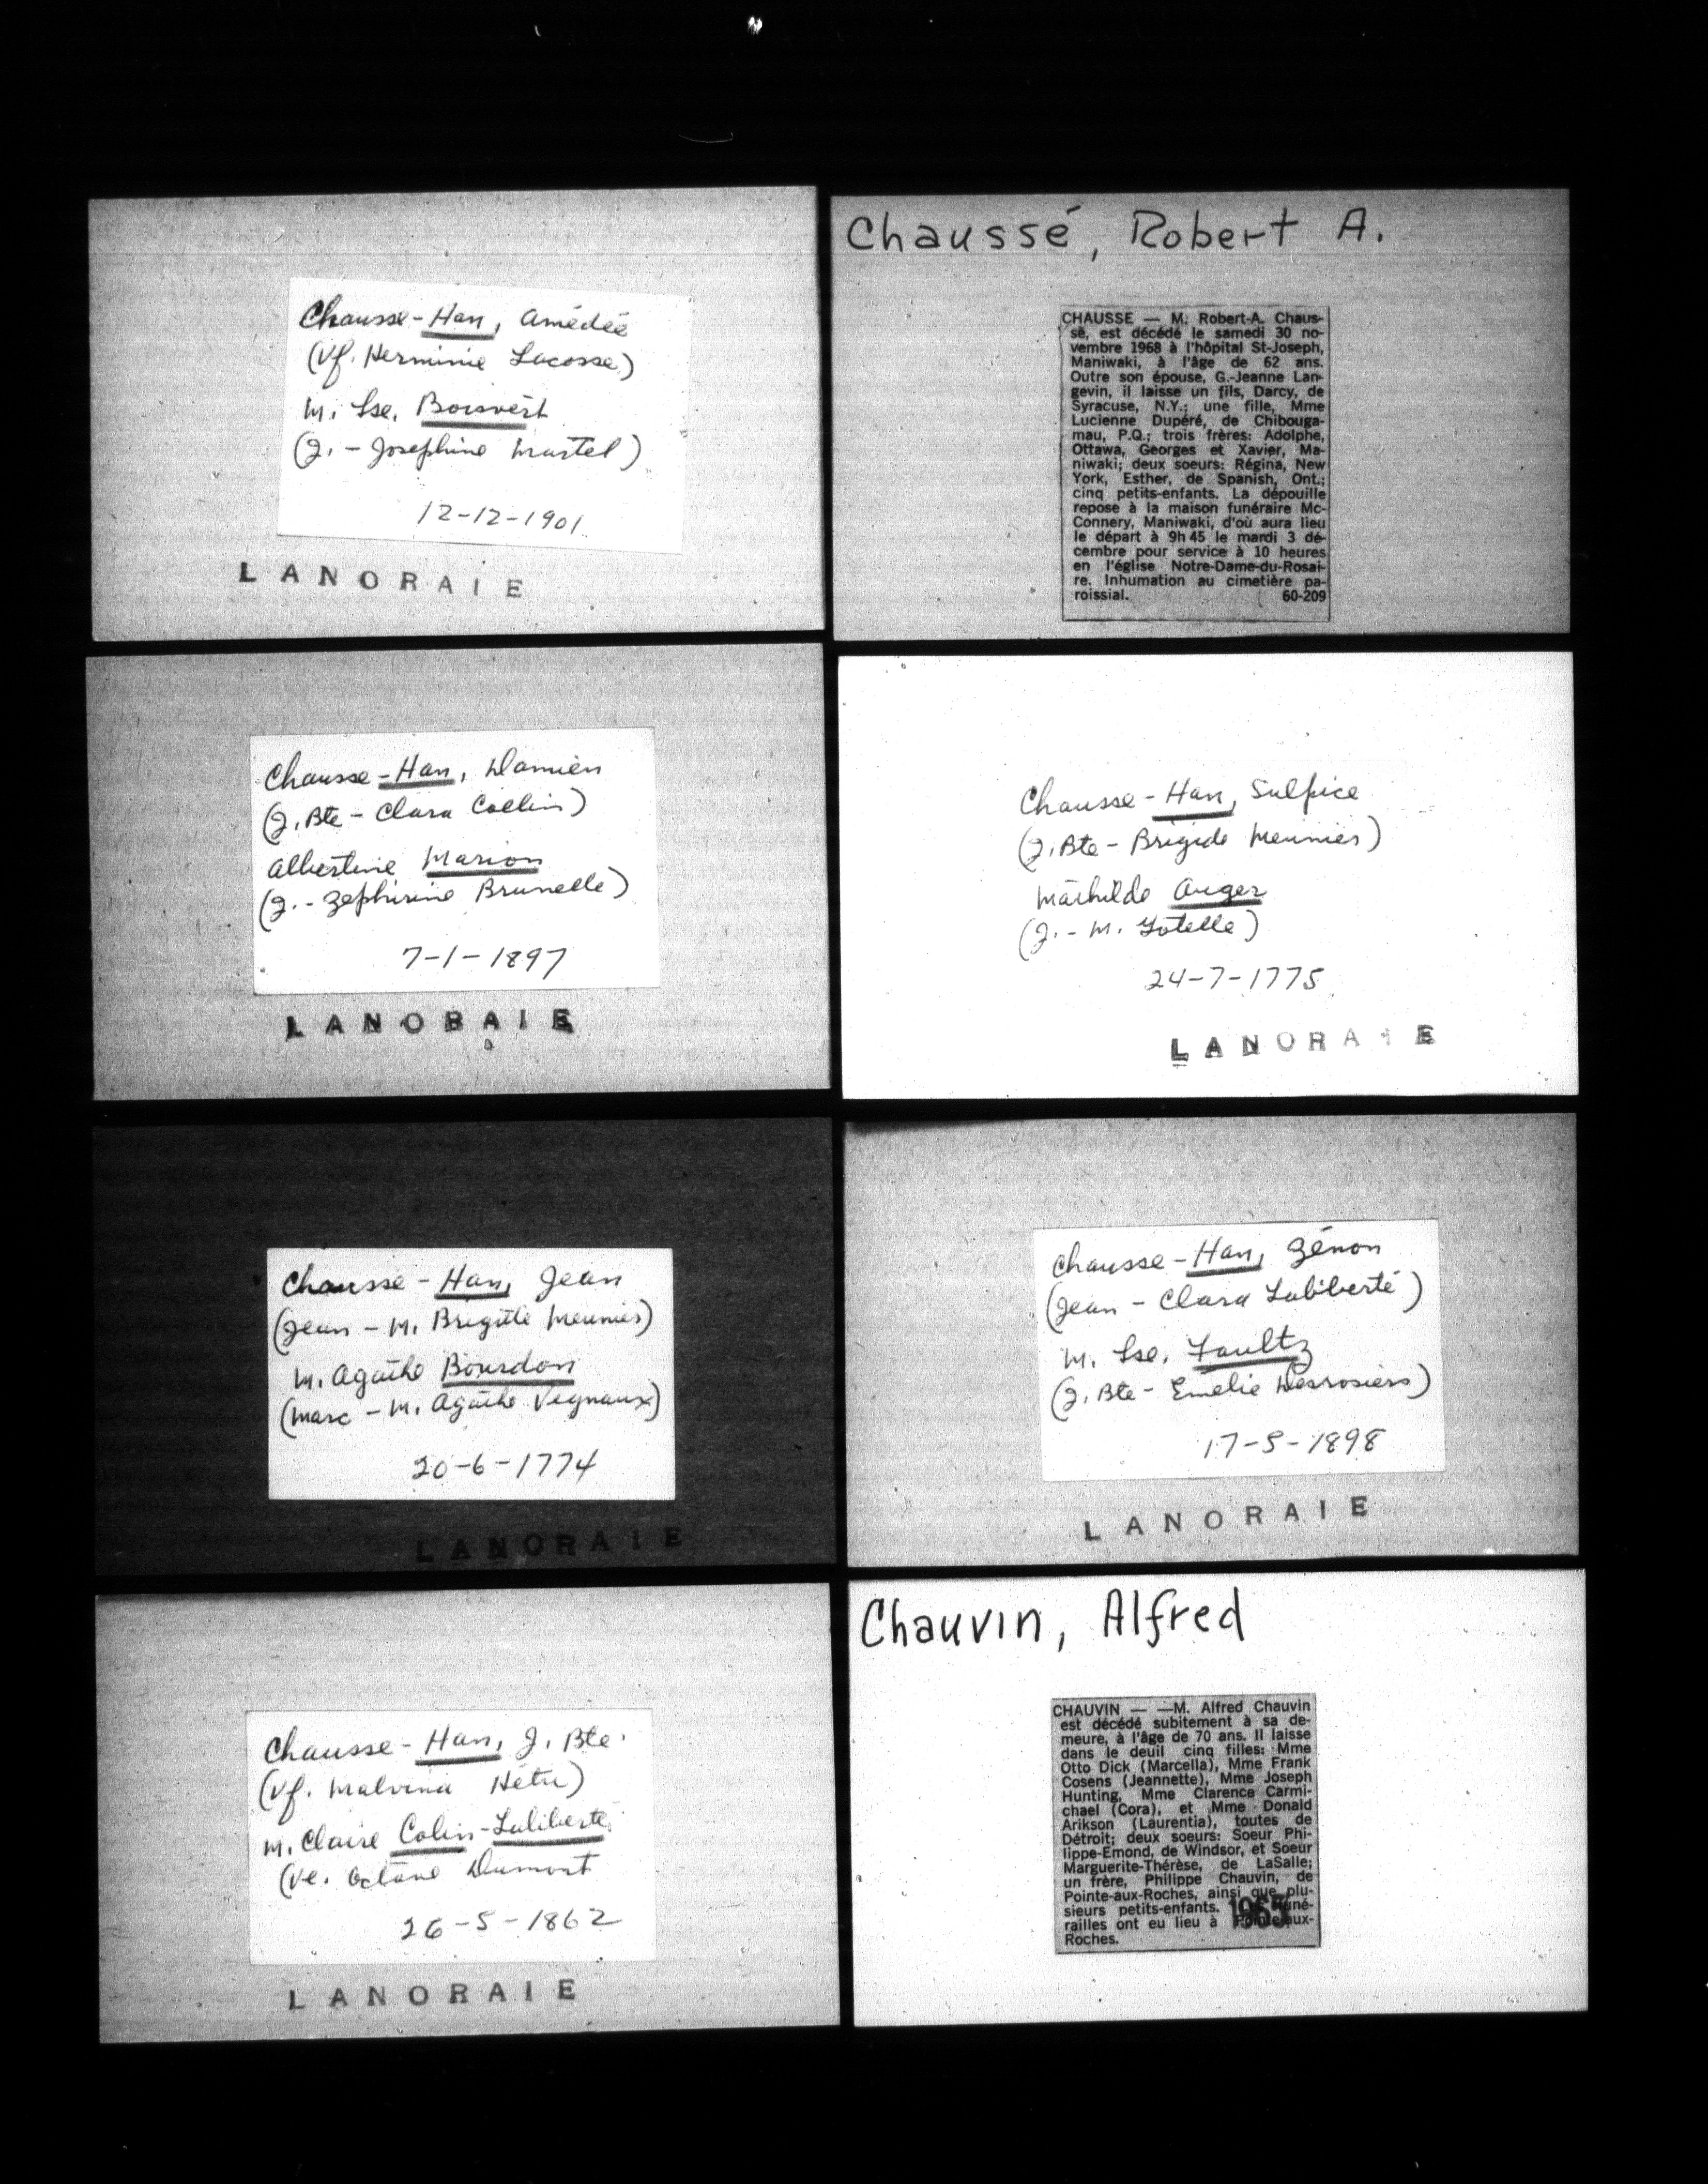 Chausse-Han, Amédée
(Vf. Herminie Lacosse)
M. Lse. Boisvert
(J. - Josephine Martel)
12-12-1901
LANORAIE
Chausse-Han, Damien
(J. Bte - Clara Collin)
Albertine Marion
(J. - Zephirine Brunelle)
7-1-1897
LANORAIE
Chausse-Han, Jean
(Jean - M. Brigitte Meunier)
M. Agathe Bourdon
(Marc - M. Agathe Vegnaux)
20-6-1774
LANORAIE
Chausse-Han, J. Bte.
(Vf. Malvina Hétu)
M. Claire Colin-Laliberté
(Ve. Octave Dumont
26-5-1862
LANORAIE
Chaussé, Robert A.
CHAUSSE — M. Robert-A. Chaus-
sé, est décédé le samedi 30 no-
vembre 1968 à l'hôpital St-Joseph,
Maniwaki, à l'âge de 62 ans.
Outre son épouse, G.-Jeanne Lan-
gevin, il laisse un fils, Darcy, de
Syracuse, N.Y.; une fille, Mme
Lucienne Dupéré, de Chibouga-
mau, P.Q.; trois frères: Adolphe,
Ottawa, Georges et Xavier, Ma-
niwaki; deux soeurs: Régina, New
York, Esther, de Spanish, Ont.;
cinq petits-enfants. La dépouille
repose à la maison funéraire Mc-
Connery, Maniwaki, d'où aura lieu
le départ à 9h 45 le mardi 3 dé-
cembre pour service à 10 heures
en l'église Notre-Dame-du-Rosai-
re. Inhumation au cimetière pa-
roissial. 60-209
Chausse-Han, Sulpice
(J. Bte - Brigide Meunier)
Mathilde Auger
(J. - M. Yotelle)
24-7-1775
LANORAIE
Chausse-Han, Zénon
(Jean - Clara Laliberté)
M. Lse. Faultz
(J. Bte - Emelie Desrosiers)
17-5-1898
LANORAIE
Chauvin, Alfred
CHAUVIN — —M. Alfred Chauvin
est décédé subitement à sa de-
meure, à l'âge de 70 ans. Il laisse
dans le deuil cinq filles: Mme
Otto Dick (Marcella), Mme Frank
Cosens (Jeannette), Mme Joseph
Hunting, Mme Clarence Carmi-
chael (Cora), et Mme Donald
Arikson (Laurentia), toutes de
Détroit; deux soeurs: Soeur Phi-
lippe-Emond, de Windsor, et Soeur
Marguerite-Thérèse, de LaSalle;
un frère, Philippe Chauvin, de
Pointe-aux-Roches, ainsi que plu-
sieurs petits-enfants. 1965 Funé-
railles ont eu lieu à Pointe-aux-
Roches.